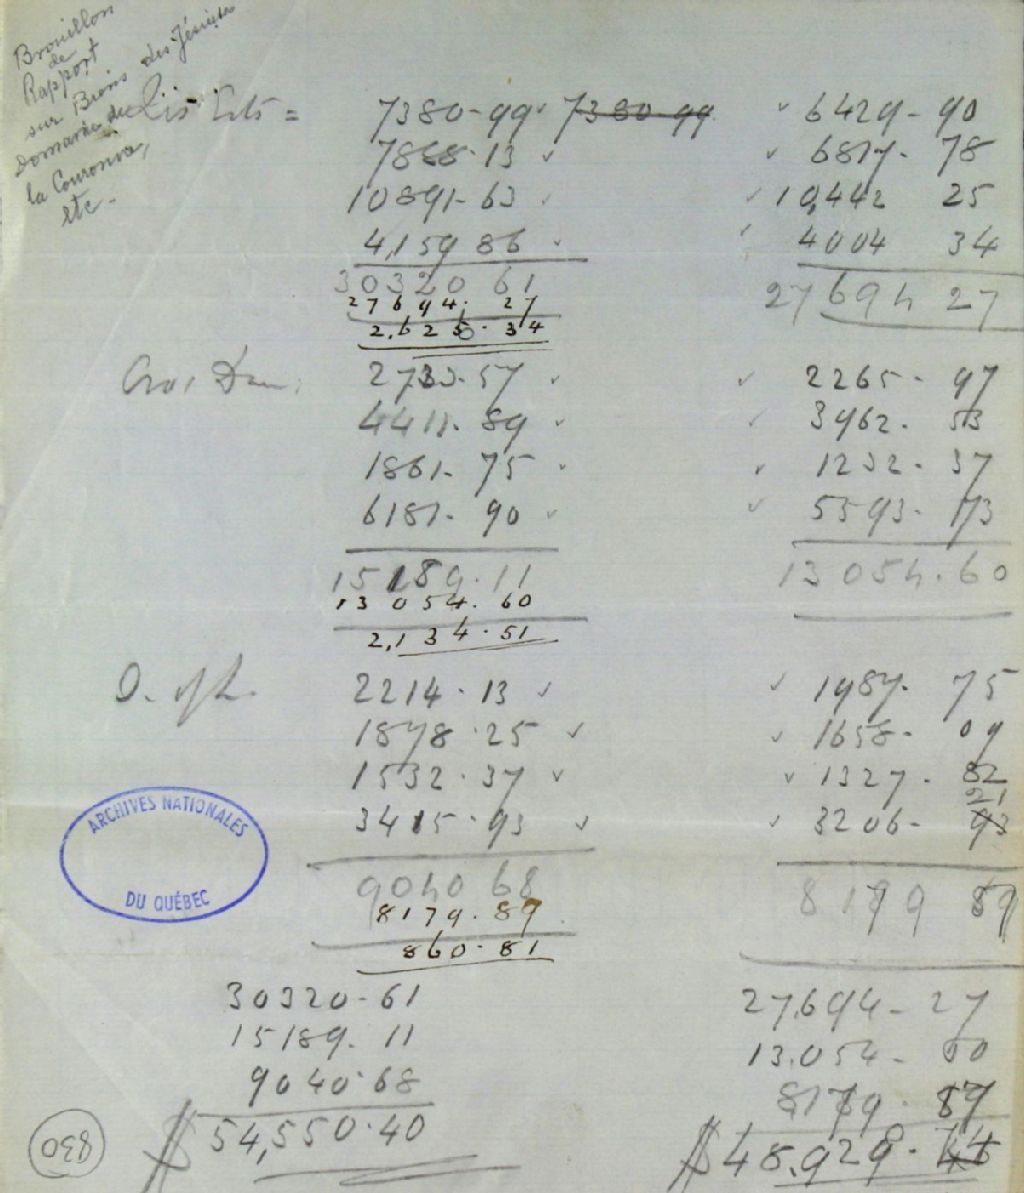 Brouillon
de
Rapport
sur Biens des Jésuites
Domaine de
la Couronne,
etc.
Ests = 7380-99 7380-99 6429-90
7888-13 6817-78
10891-63 10,442 25
4,159 86 4004 34
30320 61 27694 27
27694.27
2,625.34
2733.57 2265-97
4411.89 3962.53
1861-75 1232-37
6181-90 5593-73
15189.11 13054.60
13054.60
2,134.51
2214.13 1987.75
1878.25 1658-09
1532.37 1327.82
21
3415.93 3206-93
9040 68 8179 89
8179.89
860.81
30320-61 27,694-27
15189.11 13.054-60
9040.68 8179.87
$54,550.40 $48,929.44
ARCHIVES NATIONALES
DU QUÉBEC
830